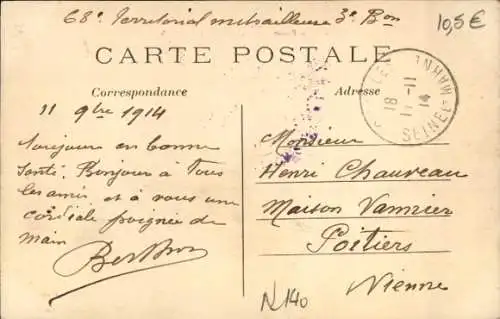 68e Territorial mitrailleuse 3e Bon
10,5€
CARTE POSTALE
Correspondance
Adresse
11 9bre 1914
Toujours en bonne
santé. Bonjour à tous
les amis et à vous une
cordiale poignée de
main
Monsieur
Henri Chauveau
Maison Vannier
Poitiers
Vienne
18 - 11
14
SEINE ET MARNE
N 140